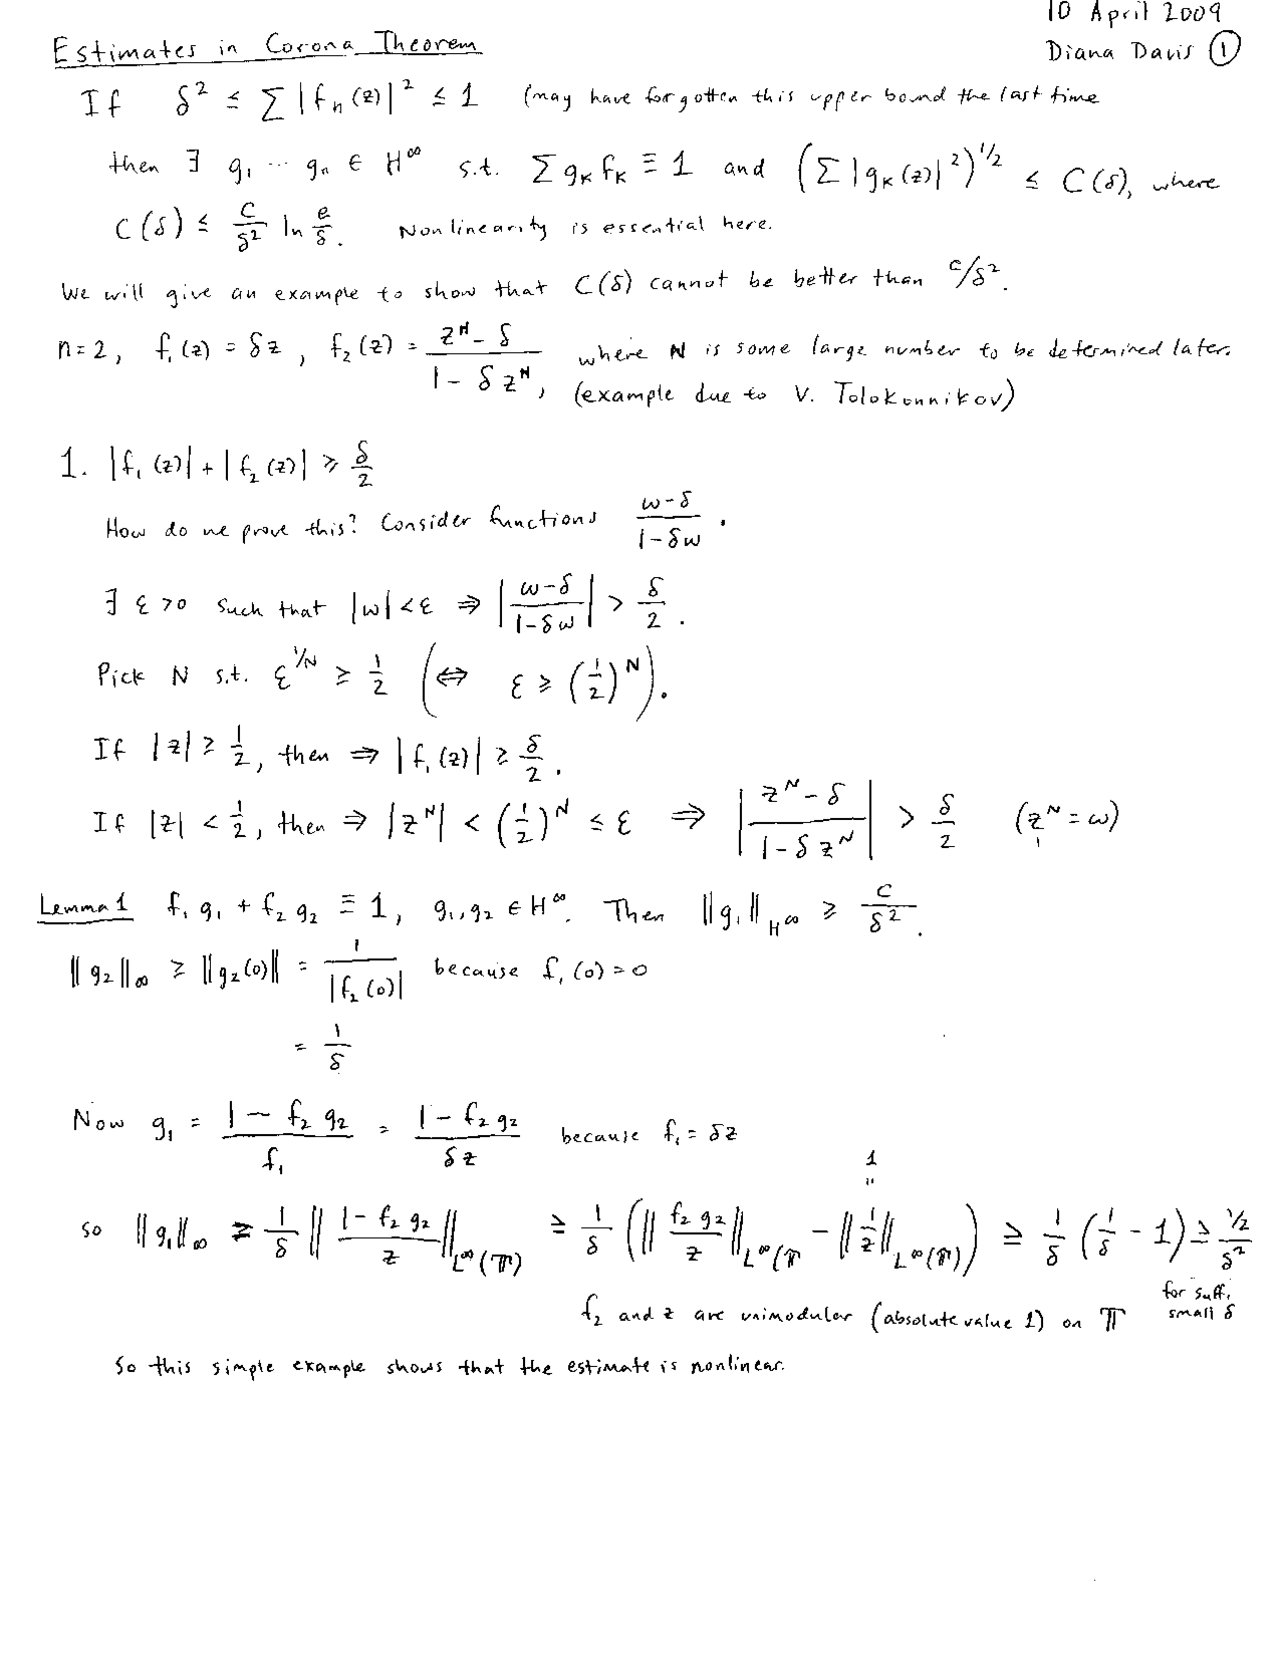 10 April 2009
Estimates in Corona Theorem
Diana Davis ①
If δ² ≤ ∑ |fₙ(z)|² ≤ 1 (may have forgotten this upper bound the last time
then ∃ g₁ ⋯ gₙ ∈ H^∞ s.t. ∑ g_K f_K ≡ 1 and (∑ |g_K(z)|²)^{1/2} ≤ C(δ), where
C(δ) ≤ C/δ² ln e/δ. Nonlinearity is essential here.
We will give an example to show that C(δ) cannot be better than c/δ².
n=2, f₁(z) = δz, f₂(z) = (z^N - δ)/(1 - δz^N), where N is some large number to be determined later.
(example due to V. Tolokonnikov)
1. |f₁(z)| + |f₂(z)| ≥ δ/2
How do we prove this? Consider functions (ω-δ)/(1-δω).
∃ ε>0 such that |ω|<ε ⇒ |(ω-δ)/(1-δω)| > δ/2.
Pick N s.t. ε^{1/N} ≥ 1/2 (⇔ ε ≥ (1/2)^N).
If |z| ≥ 1/2, then ⇒ |f₁(z)| ≥ δ/2.
If |z| < 1/2, then ⇒ |z^N| < (1/2)^N ≤ ε ⇒ |(z^N - δ)/(1 - δz^N)| > δ/2 (z^N = ω)
Lemma 1 f₁g₁ + f₂g₂ ≡ 1, g₁,g₂ ∈ H^∞. Then ‖g₁‖_{H^∞} ≥ C/δ².
‖g₂‖_∞ ≥ ‖g₂(0)‖ = 1/|f₂(0)| because f₁(0)=0
= 1/δ
Now g₁ = (1 - f₂g₂)/f₁ = (1 - f₂g₂)/(δz) because f₁ = δz
1
"
so ‖g₁‖_∞ ≥ 1/δ ‖(1 - f₂g₂)/z‖_{L^∞(𝕋)} ≥ 1/δ (‖f₂g₂/z‖_{L^∞(𝕋} - ‖1/z‖_{L^∞(𝕋)}) ≥ 1/δ (1/δ - 1) ≥ (1/2)/δ²
for suff. small δ
f₂ and z are unimodular (absolute value 1) on 𝕋
So this simple example shows that the estimate is nonlinear.